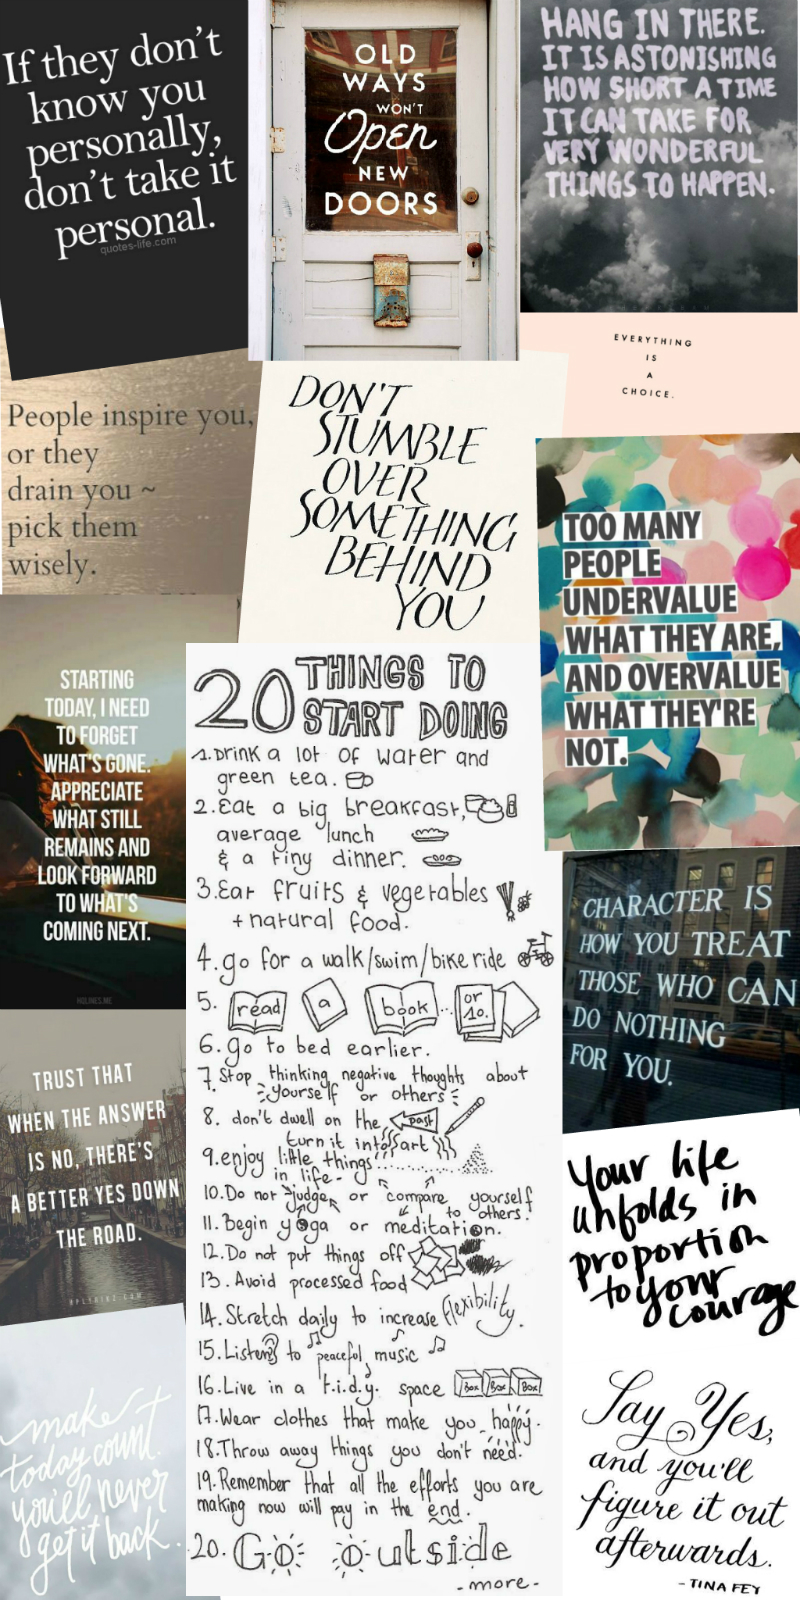 If they don't
know you
personally,
don't take it
personal.
quotes-life.com
OLD
WAYS
WON'T
Open
NEW
DOORS
HANG IN THERE.
IT IS ASTONISHING
HOW SHORT A TIME
IT CAN TAKE FOR
VERY WONDERFUL
THINGS TO HAPPEN.
EVERYTHING
IS
A
CHOICE.
People inspire you,
or they
drain you ~
pick them
wisely.
DON'T
STUMBLE
OVER
SOMETHING
BEHIND
YOU
TOO MANY
PEOPLE
UNDERVALUE
WHAT THEY ARE,
AND OVERVALUE
WHAT THEY'RE
NOT.
STARTING
TODAY, I NEED
TO FORGET
WHAT'S GONE.
APPRECIATE
WHAT STILL
REMAINS AND
LOOK FORWARD
TO WHAT'S
COMING NEXT.
20 THINGS TO
START DOING
1. Drink a lot of water and
green tea.
2. Eat a big breakfast,
average lunch
& a tiny dinner.
3. Eat fruits & vegetables
+ natural food.
4. go for a walk/swim/bike ride
5. read a book... or 10.
6. go to bed earlier.
7. Stop thinking negative thoughts about
yourself or others
8. don't dwell on the past
turn it into art
9. enjoy little things
in life-
10. Do not judge or compare yourself
to others.
11. Begin yoga or meditation.
12. Do not put things off
13. Avoid processed food
14. Stretch daily to increase flexibility.
15. Listen to peaceful music
16. Live in a t.i.d.y. space Box Box Box
17. Wear clothes that make you happy.
18. Throw away things you don't need.
19. Remember that all the efforts you are
making now will pay in the end.
20. Go outside
- more -
CHARACTER IS
HOW YOU TREAT
THOSE WHO CAN
DO NOTHING
FOR YOU.
TRUST THAT
WHEN THE ANSWER
IS NO, THERE'S
A BETTER YES DOWN
THE ROAD.
Your life
unfolds in
proportion
to your
courage
make
today count.
you'll never
get it back.
Say Yes,
and you'll
figure it out
afterwards.
- TINA FEY